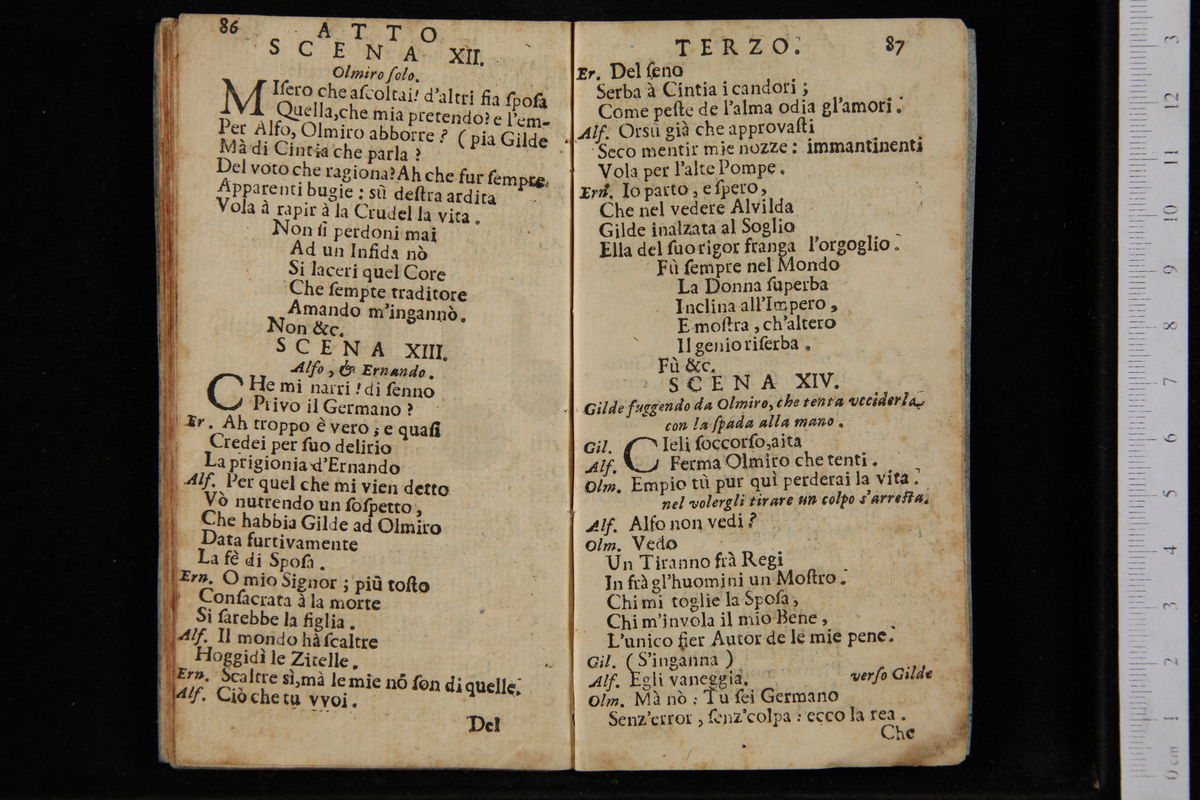 86
ATTO
SCENA XII.
Olmiro ſolo.
MIſero che aſcoltai! d'altri fia ſpoſa
Quella, che mia pretendo? e l'em-
Per Alfo, Olmiro abborre? (pia Gilde
Mà di Cintia che parla?
Del voto che ragiona? Ah che fur ſempre
Apparenti bugie: sù deſtra ardita
Vola à rapir à la Crudel la vita.
Non ſi perdoni mai
Ad un Infida nò
Si laceri quel Core
Che ſempte traditore
Amando m'ingannò.
Non &c.
SCENA XIII.
Alfo, & Ernando.
CHe mi narri! di ſenno
Privo il Germano?
Er. Ah troppo è vero; e quaſi
Credei per ſuo delirio
La prigionia d'Ernando
Alf. Per quel che mi vien detto
Vò nutrendo un ſoſpetto,
Che habbia Gilde ad Olmiro
Data furtivamente
La fè di Spoſa.
Ern. O mio Signor; più toſto
Conſacrata à la morte
Si ſarebbe la figlia.
Alf. Il mondo hà ſcaltre
Hoggidì le Zitelle.
Ern. Scaltre sì, mà le mie nõ ſon di quelle.
Alf. Ciò che tu vvoi.
Del
TERZO. 87
Er. Del ſeno
Serba à Cintia i candori;
Come peſte de l'alma odia gl'amori.
Alf. Orsù già che approvaſti
Seco mentir mie nozze: immantinenti
Vola per l'alte Pompe.
Ern. Io parto, e ſpero,
Che nel vedere Alvilda
Gilde inalzata al Soglio
Ella del ſuo rigor franga l'orgoglio.
Fù ſempre nel Mondo
La Donna ſuperba
Inclina all'Impero,
E moſtra, ch'altero
Il genio riſerba.
Fù &c.
SCENA XIV.
Gilde fuggendo da Olmiro, che tenta vcciderla
con la ſpada alla mano.
Gil. CIeli ſoccorſo, aita
Alf. Ferma Olmiro che tenti.
Olm. Empio tù pur quì perderai la vita.
nel volergli tirare un colpo s'arreſta.
Alf. Alfo non vedi?
Olm. Vedo
Un Tiranno frà Regi
In frà gl'huomini un Moſtro.
Chi mi toglie la Spoſa,
Chi m'invola il mio Bene,
L'unico fier Autor de le mie pene.
Gil. (S'inganna)
Alf. Egli vaneggia. verſo Gilde
Olm. Mà nò: Tu ſei Germano
Senz'error, ſenz'colpa: ecco la rea.
Che
3
12
11
10
9
8
7
6
5
4
3
2
1
0 cm